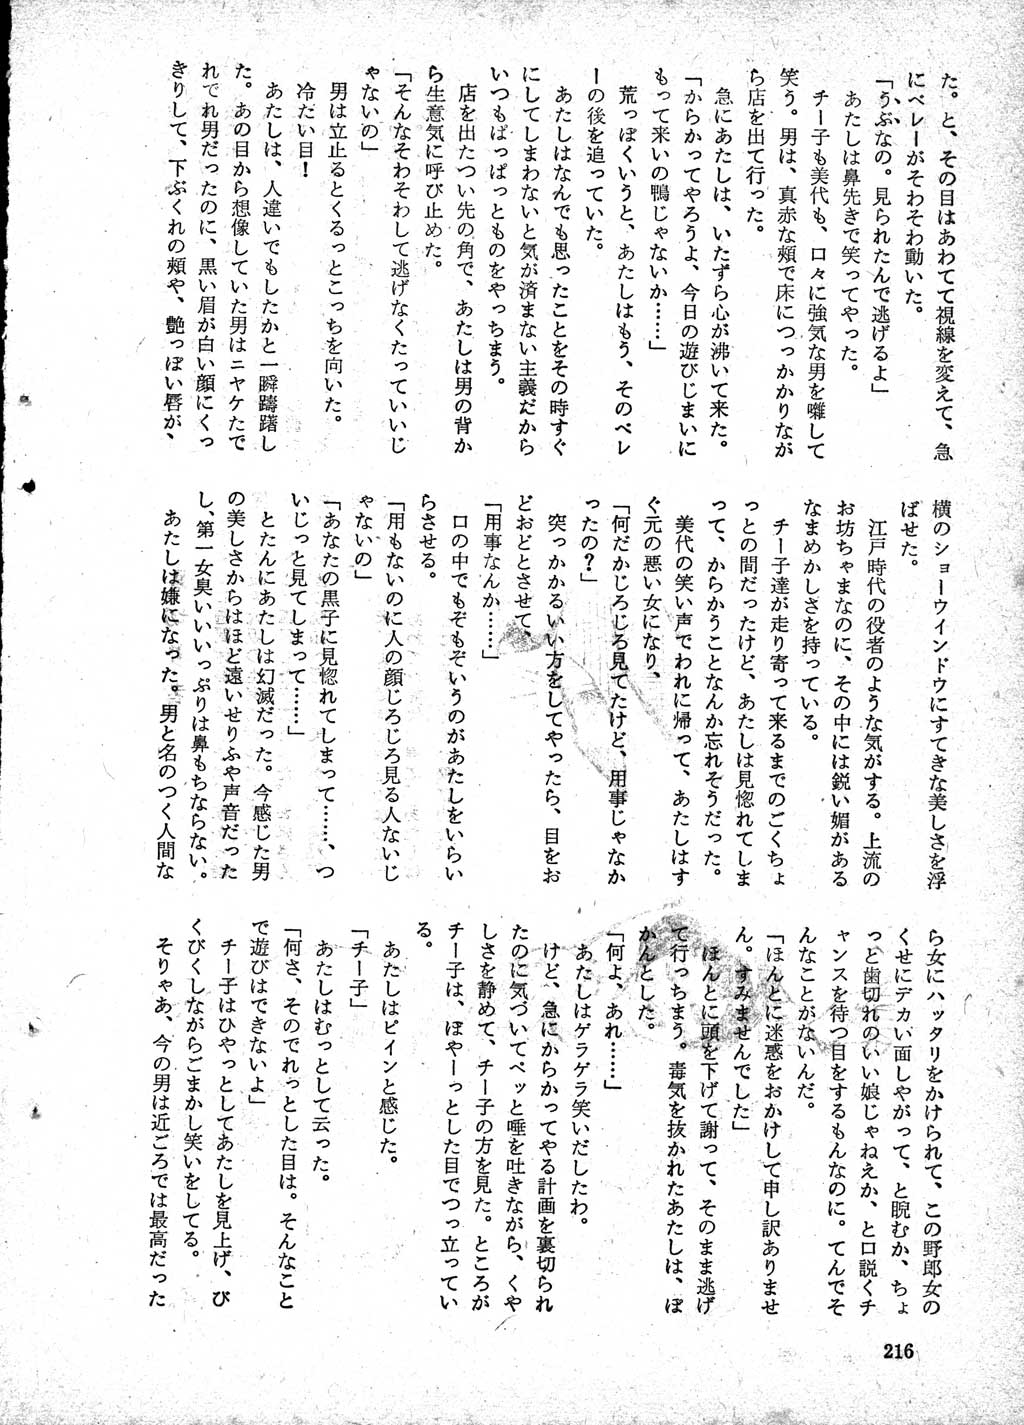 た。と、その目はあわてて視線を変えて、急
にベレーがそわそわ動いた。
「うぶなの。見られたんで逃げるよ」
あたしは鼻先きで笑ってやった。
チー子も美代も、口々に強気な男を囃して
笑う。男は、真赤な頰で床につっかかりなが
ら店を出て行った。
急にあたしは、いたずら心が沸いて来た。
「からかってやろうよ、今日の遊びじまいに
もって来いの鴨じゃないか……」
荒っぽくいうと、あたしはもう、そのベレ
ーの後を追っていた。
あたしはなんでも思ったことをその時すぐ
にしてしまわないと気が済まない主義だから
いつもぱっぱっとものをやっちまう。
店を出たつい先の角で、あたしは男の背か
ら生意気に呼び止めた。
「そんなそわそわして逃げなくたっていいじ
ゃないの」
男は立止るとくるっとこっちを向いた。
冷たい目！
あたしは、人違いでもしたかと一瞬躊躇し
た。あの目から想像していた男はニヤケたで
れでれ男だったのに、黒い眉が白い顔にくっ
きりして、下ぶくれの頰や、艶っぽい唇が、
横のショーウインドウにすてきな美しさを浮
ばせた。
江戸時代の役者のような気がする。上流の
お坊ちゃまなのに、その中には鋭い媚がある
なまめかしさを持っている。
チー子達が走り寄って来るまでのごくちょ
っとの間だったけど、あたしは見惚れてしま
って、からかうことなんか忘れそうだった。
美代の笑い声でわれに帰って、あたしはす
ぐ元の悪い女になり、
「何だかじろじろ見てたけど、用事じゃなか
ったの？」
突っかかるいい方をしてやったら、目をお
どおどとさせて、
「用事なんか……」
口の中でもぞもぞいうのがあたしをいらい
らさせる。
「用もないのに人の顔じろじろ見る人ないじ
ゃないの」
「あなたの黒子に見惚れてしまって……、つ
いじっと見てしまって……」
とたんにあたしは幻滅だった。今感じた男
の美しさからはほど遠いせりふや声音だった
し、第一女臭いいいっぷりは鼻もちならない。
あたしは嫌になった。男と名のつく人間な
ら女にハッタリをかけられて、この野郎女の
くせにデカい面しやがって、と睨むか、ちょ
っと歯切れのいい娘じゃねえか、と口説くチ
ャンスを待つ目をするもんなのに。てんでそ
んなことがないんだ。
「ほんとに迷惑をおかけして申し訳ありませ
ん。すみませんでした」
ほんとに頭を下げて謝って、そのまま逃げ
て行っちまう。毒気を抜かれたあたしは、ぽ
かんとした。
「何よ、あれ……」
あたしはゲラゲラ笑いだしたわ。
けど、急にからかってやる計画を裏切られ
たのに気づいてペッと唾を吐きながら、くや
しさを静めて、チー子の方を見た。ところが
チー子は、ぼやーっとした目でつっ立ってい
る。
あたしはピインと感じた。
「チー子」
あたしはむっとして云った。
「何さ、そのでれっとした目は。そんなこと
で遊びはできないよ」
チー子はひやっとしてあたしを見上げ、び
くびくしながらごまかし笑いをしてる。
そりゃあ、今の男は近ごろでは最高だった
216